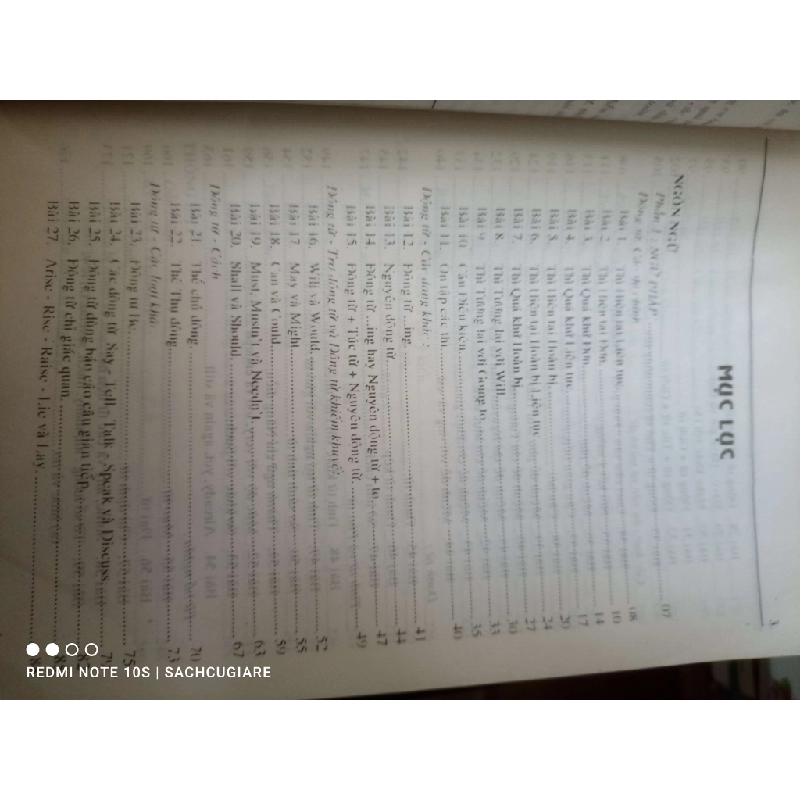 3
MỤC LỤC
NGÔN NGỮ
Phần 1 : NGỮ PHÁP 07
Động từ, Các thì chính
Bài 1. Thì Hiện tại Liên tục 08
Bài 2. Thì Hiện tại Đơn 10
Bài 3. Thì Quá khứ Đơn 14
Bài 4. Thì Quá khứ Liên tục 17
Bài 5. Thì Hiện tại Hoàn bị 20
Bài 6. Thì Hiện tại Hoàn bị Liên tục 24
Bài 7. Thì Quá khứ Hoàn bị 27
Bài 8. Thì Tương lai với Will 30
Bài 9. Thì Tương lai với Going to 33
Bài 10. Câu Điều kiện 35
Bài 11. Ôn tập các thì 40
Động từ - Các dạng khác :
Bài 12. Động từ ...ing 41
Bài 13. Nguyên động từ 44
Bài 14. Động từ ...ing hay Nguyên động từ + to 47
Bài 15. Động từ + Túc từ + Nguyên động từ 49
Động từ - Trợ động từ và Động từ khiếm khuyết
Bài 16. Will và Would 52
Bài 17. May và Might 55
Bài 18. Can và Could 59
Bài 19. Must, Mustn't và Needn't 63
Bài 20. Shall và Should 67
Động từ - Cách
Bài 21. Thể chủ động 70
Bài 22. Thể Thụ động 73
Động từ - Các loại khác
Bài 23. Động từ Be 75
Bài 24. Các động từ Say - Tell - Talk - Speak và Discuss
Bài 25. Động từ dùng bán câu câu gián tiếp
Bài 26. Động từ chỉ giác quan
Bài 27. Arise - Rise - Raise - Lie và Lay
REDMI NOTE 10S | SACHCUGIARE